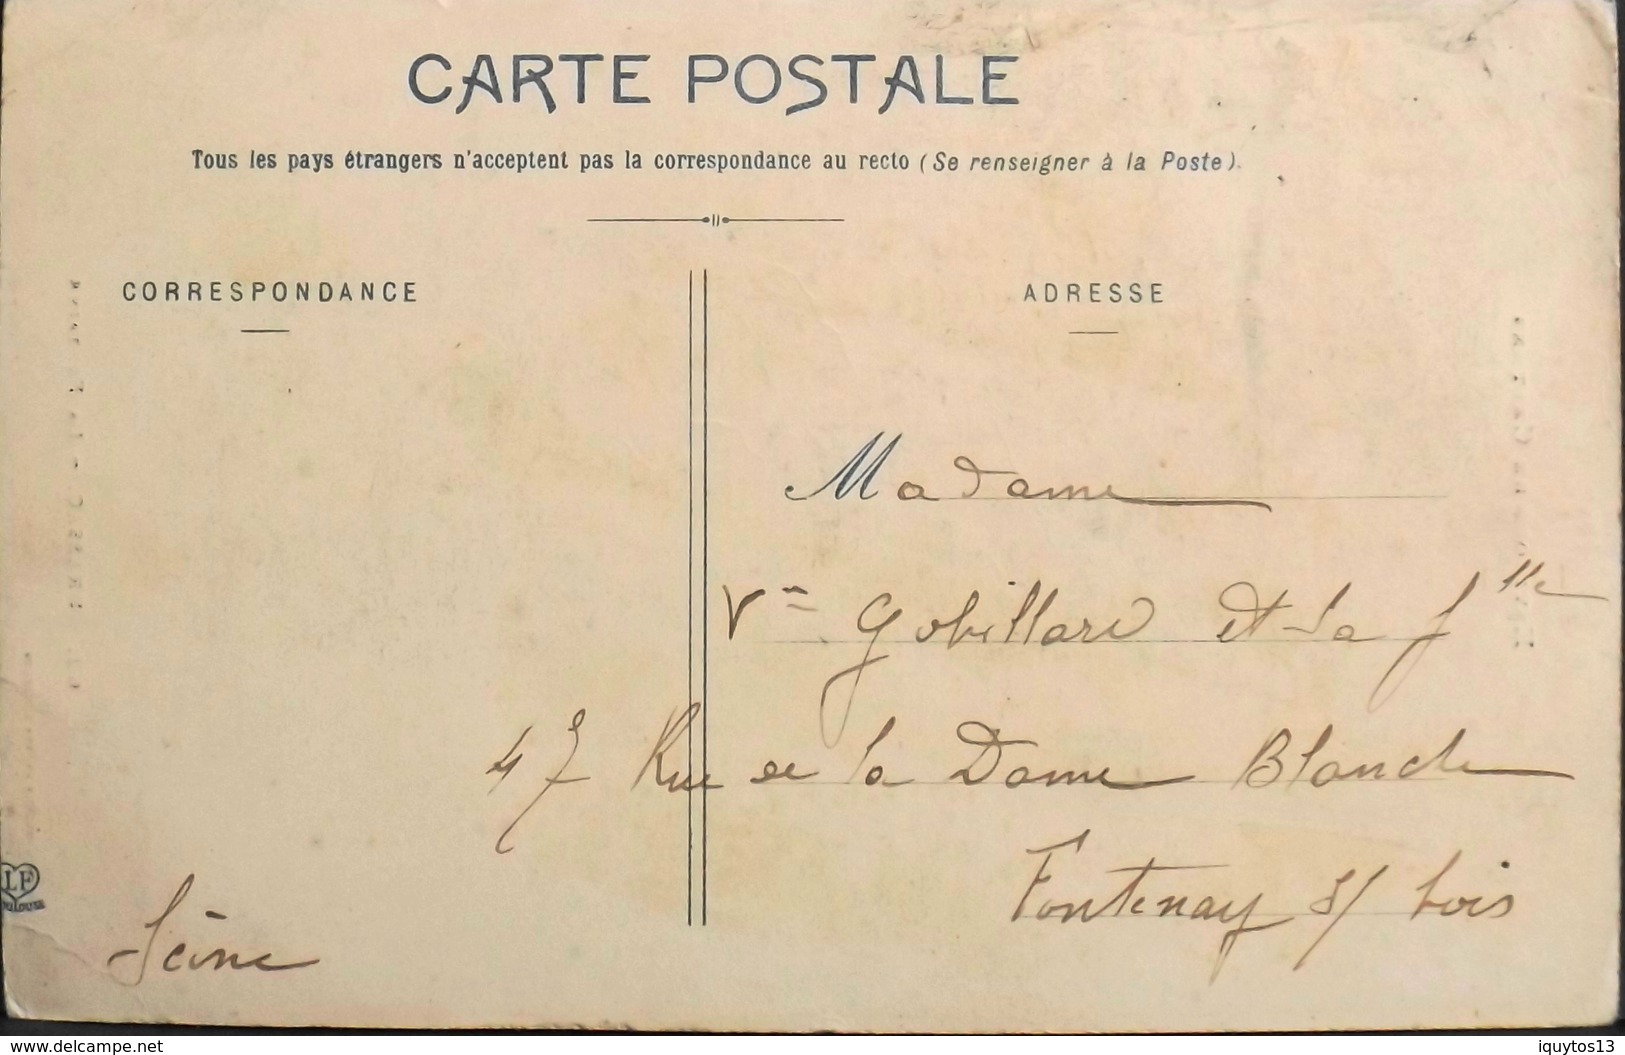 CARTE POSTALE
Tous les pays étrangers n'acceptent pas la correspondance au recto (Se renseigner à la Poste).
CORRESPONDANCE
ADRESSE
Madame
Vve Gobillard et sa flle
47 Rue de la Dame Blanche
Fontenay s/ bois
Seine
LF
www.delcampe.net
iquytos13